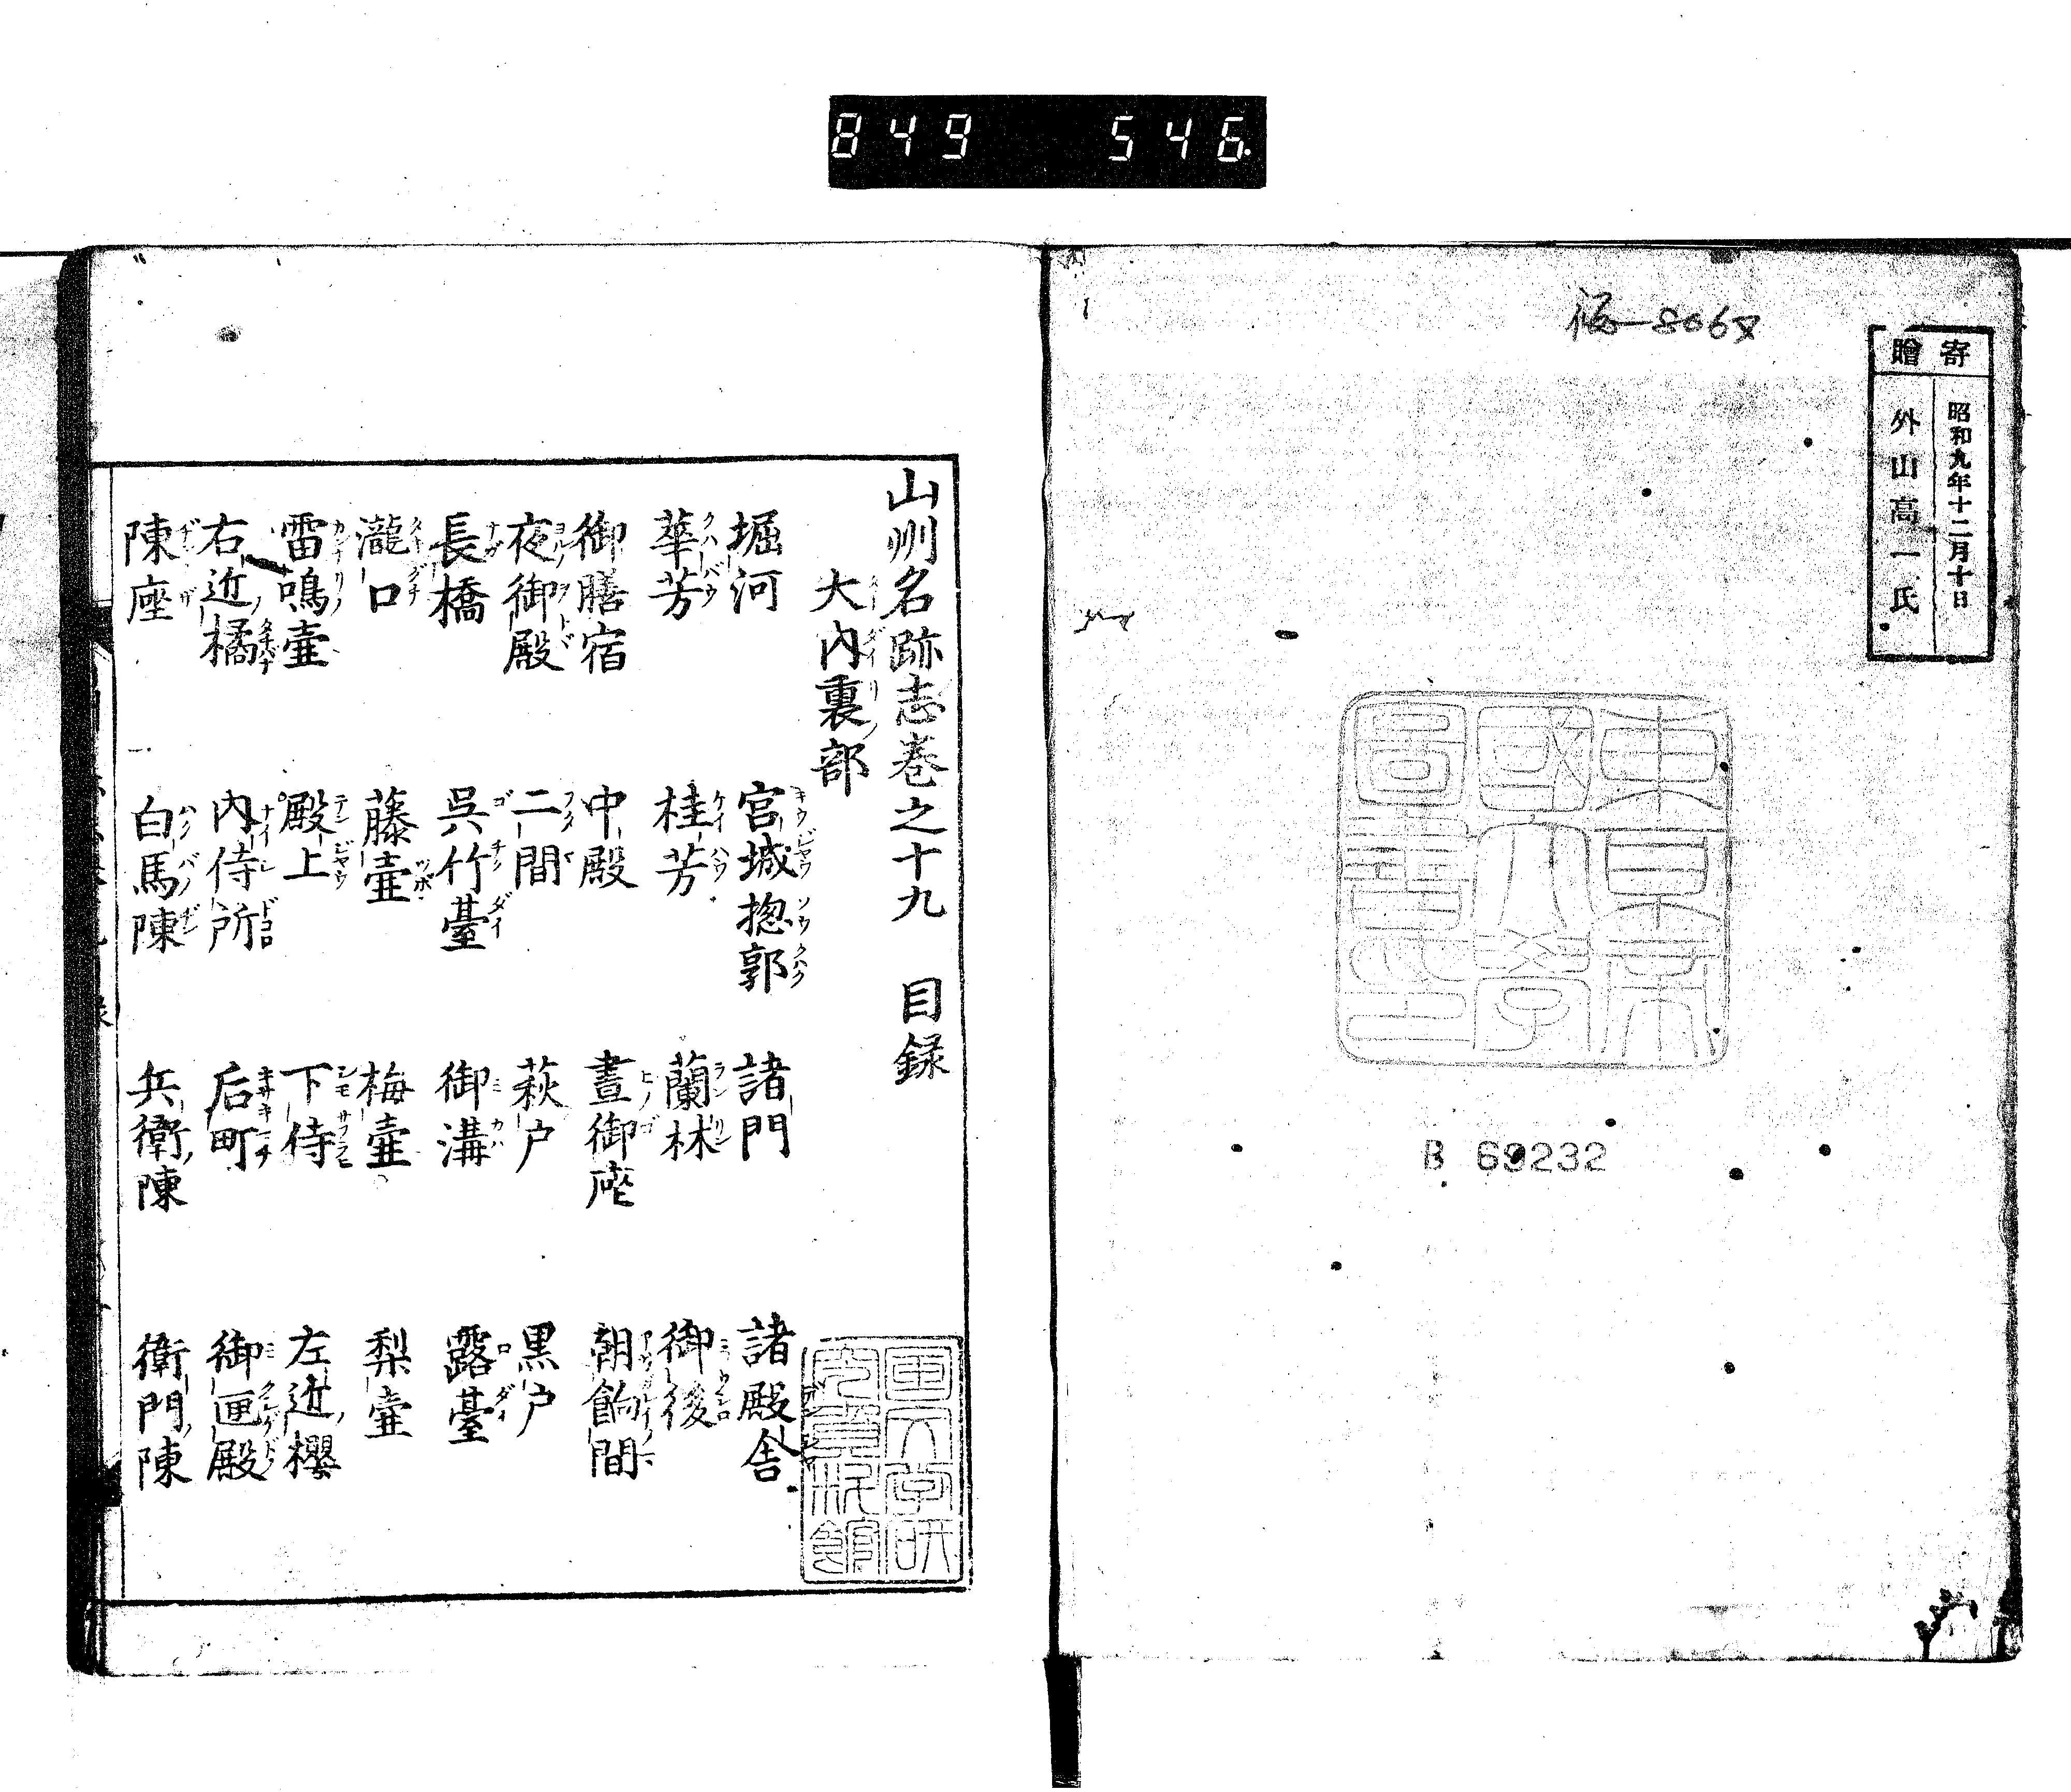 849 546
寄贈
昭和九年十二月十日
外山高一氏
東京帝國大學圖書之印
B 69232
山州名跡志巻之十九　目録
大内裏部
堀河　宮城惣郭　諸門　諸殿舎
華芳　桂芳　蘭林　御後
御膳宿　中殿　晝御座　朝餉間
夜御殿　二間　萩戸　黒戸
長橋　呉竹臺　御溝　露臺
瀧口　藤壷　梅壷　梨壷
雷鳴壷　殿上　下侍　左近櫻
右近橘　内侍所　后町　御匣殿
陳座　白馬陳　兵衛陳　衛門陳